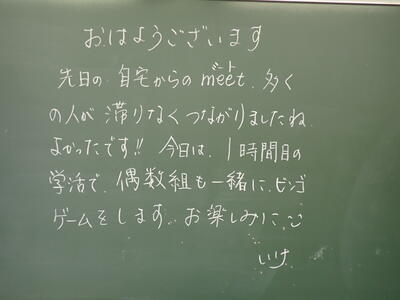 おはようございます
先日の 自宅からの meet、多く
の人が 滞りなく つながりましたね
よかったです!! 今日は、1時間目の
学活で、偶数組も一緒に、ビンゴ
ゲームをします。お楽しみに
いけ